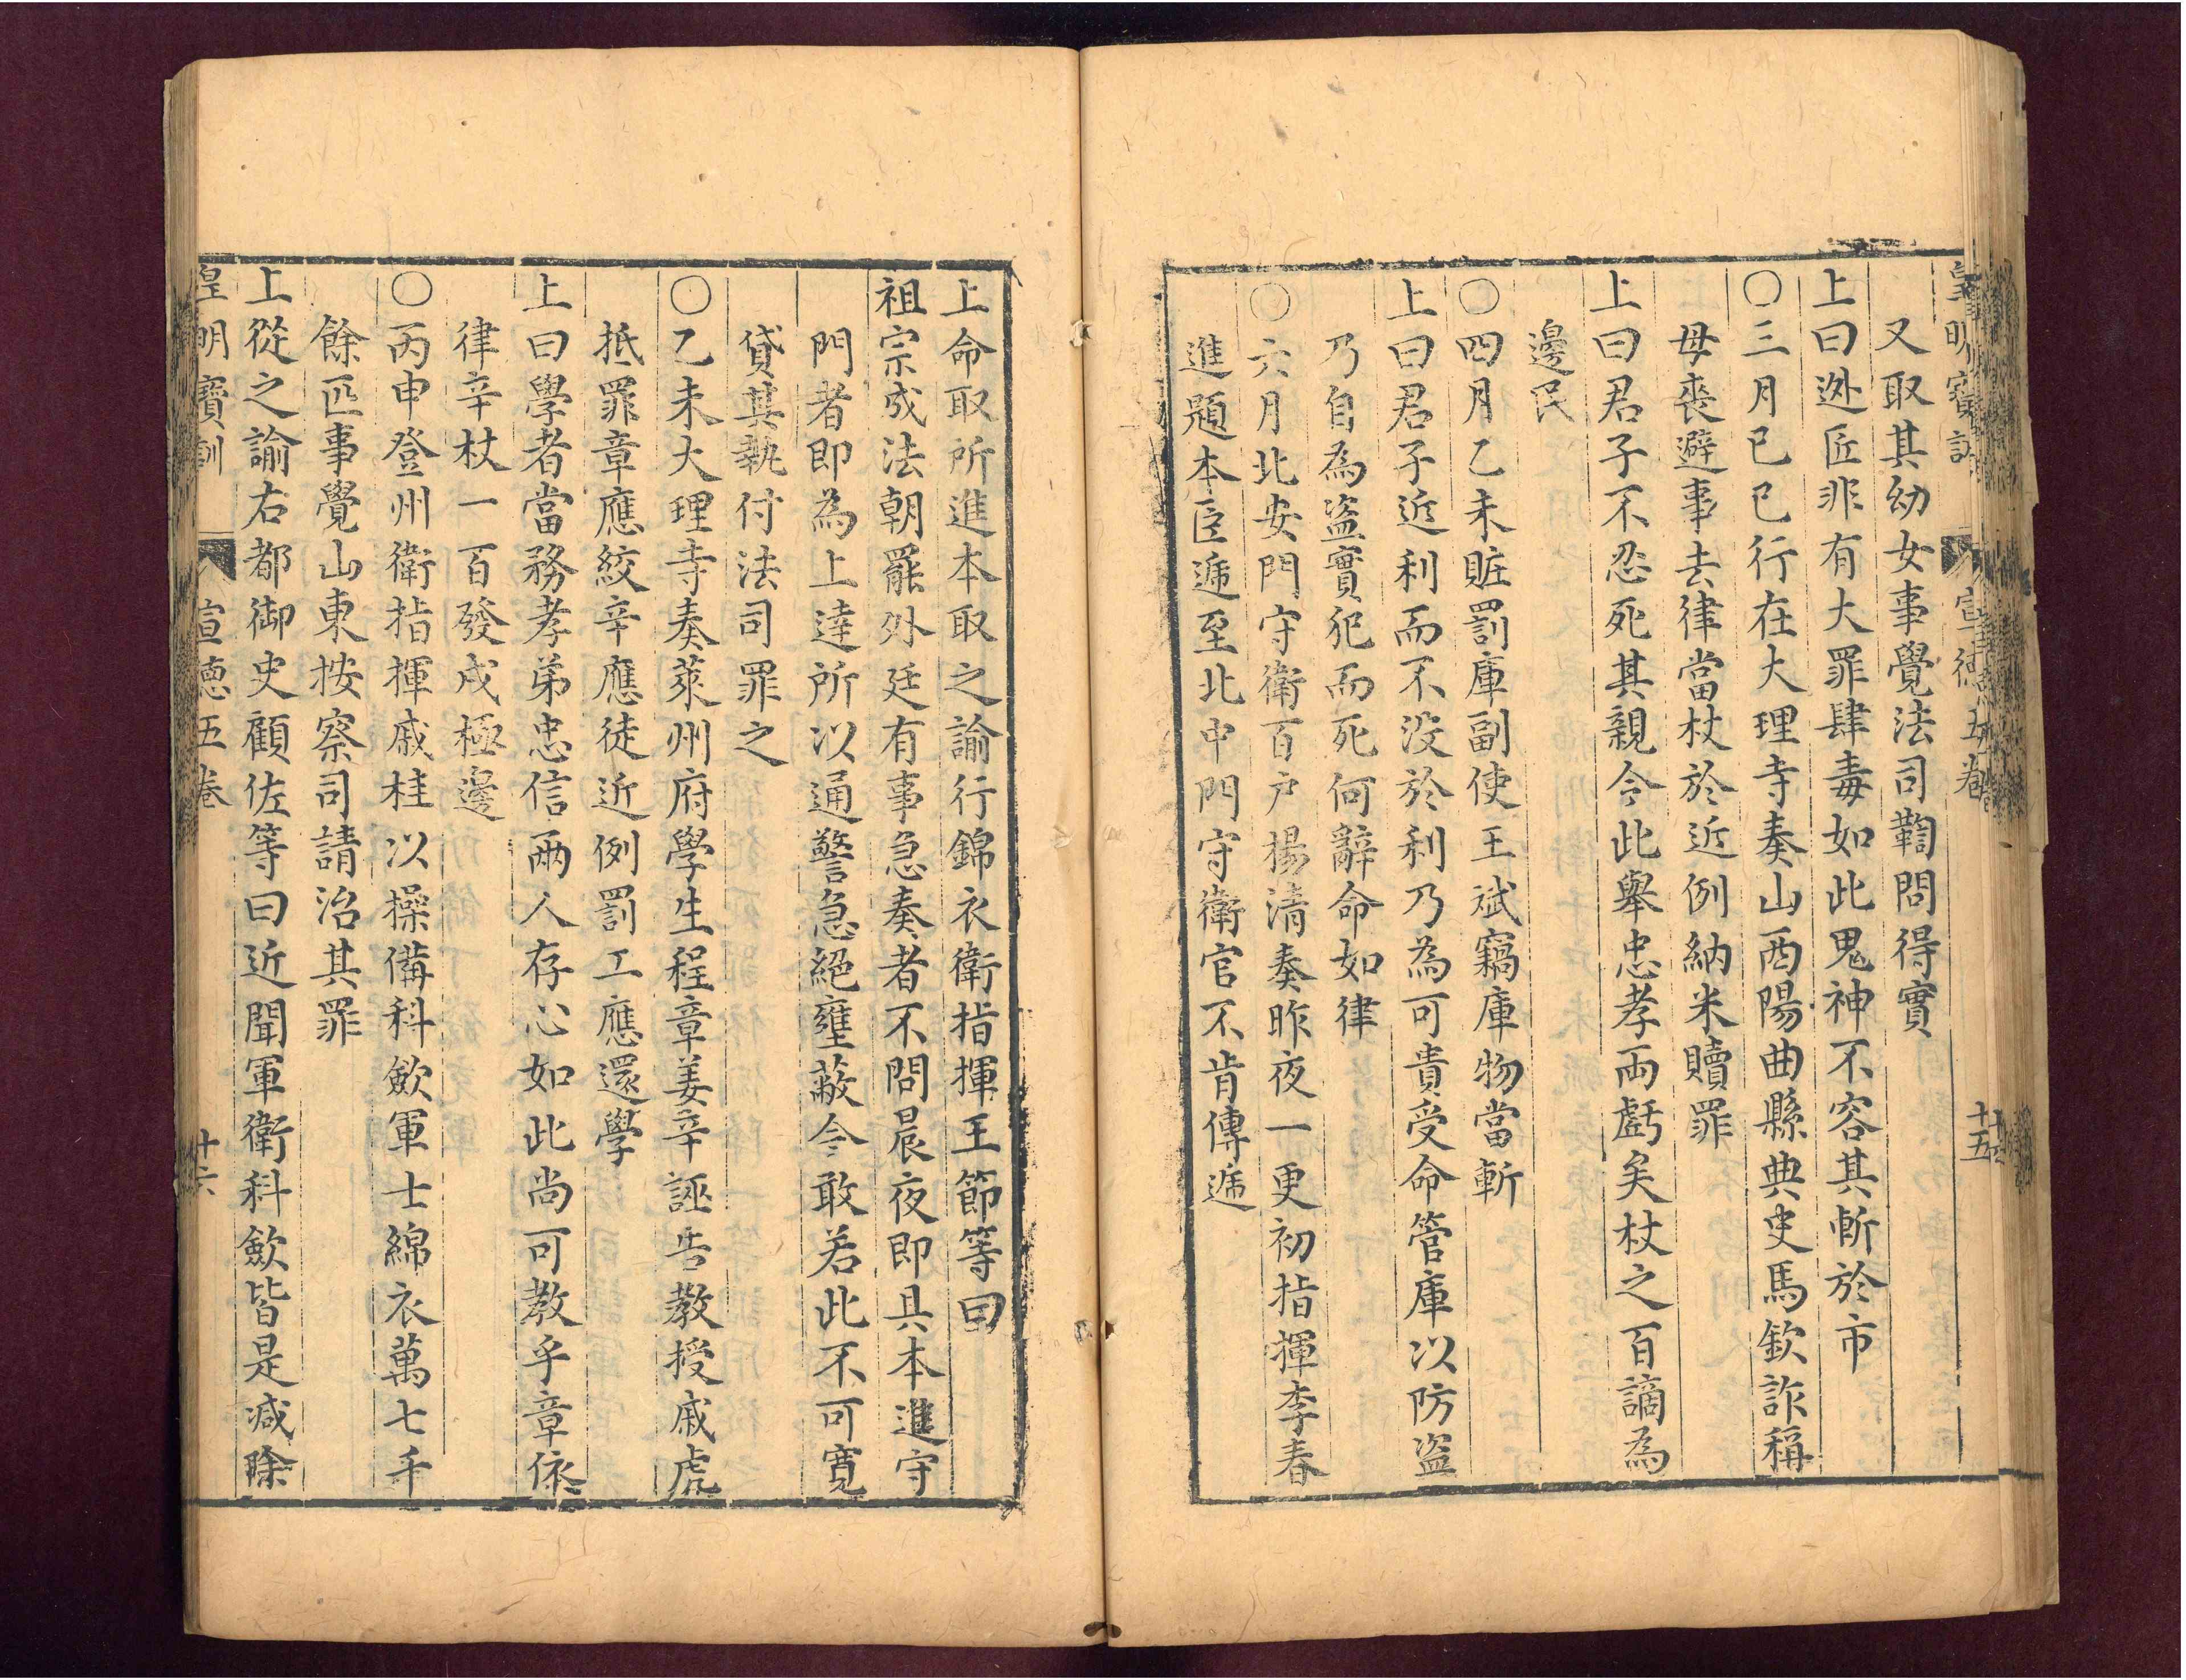 皇明寶訓 宣德五卷 十五
又取其幼女事覺法司鞫問得實
上曰迯匠非有大罪肆毒如此鬼神不容其斬於市
〇三月已已行在大理寺奏山西陽曲縣典史馬欽詐稱
母喪避事去律當杖於近例納米贖罪
上曰君子不忍死其親今此舉忠孝兩虧矣杖之百謫為
邊民
〇四月乙未賍罰庫副使王斌竊庫物當斬
上曰君子近利而不没於利乃為可貴受命管庫以防盜
乃自為盜實犯而死何辭命如律
〇六月北安門守衛百户楊清奏昨夜一更初指揮李春
進題本臣遞至北中門守衛官不肯傳遞
上命取所進本取之諭行錦衣衛指揮王節等曰
祖宗成法朝罷外廷有事急奏者不問晨夜即具本進守
門者即為上達所以通警急絕壅蔽今敢若此不可寬
貸其執付法司罪之
〇乙未大理寺奏萊州府學生程章姜辛誣告教授戚虎
抵罪章應絞辛應徒近例罰工應還學
上曰學者當務孝弟忠信兩人存心如此尚可教乎章依
律辛杖一百發戍極邊
〇丙申登州衛指揮戚桂以操備科歛軍士綿衣萬七千
餘匹事覺山東按察司請治其罪
上從之諭右都御史顧佐等曰近聞軍衛科歛皆是减除
皇明寶訓 宣德五卷 十六